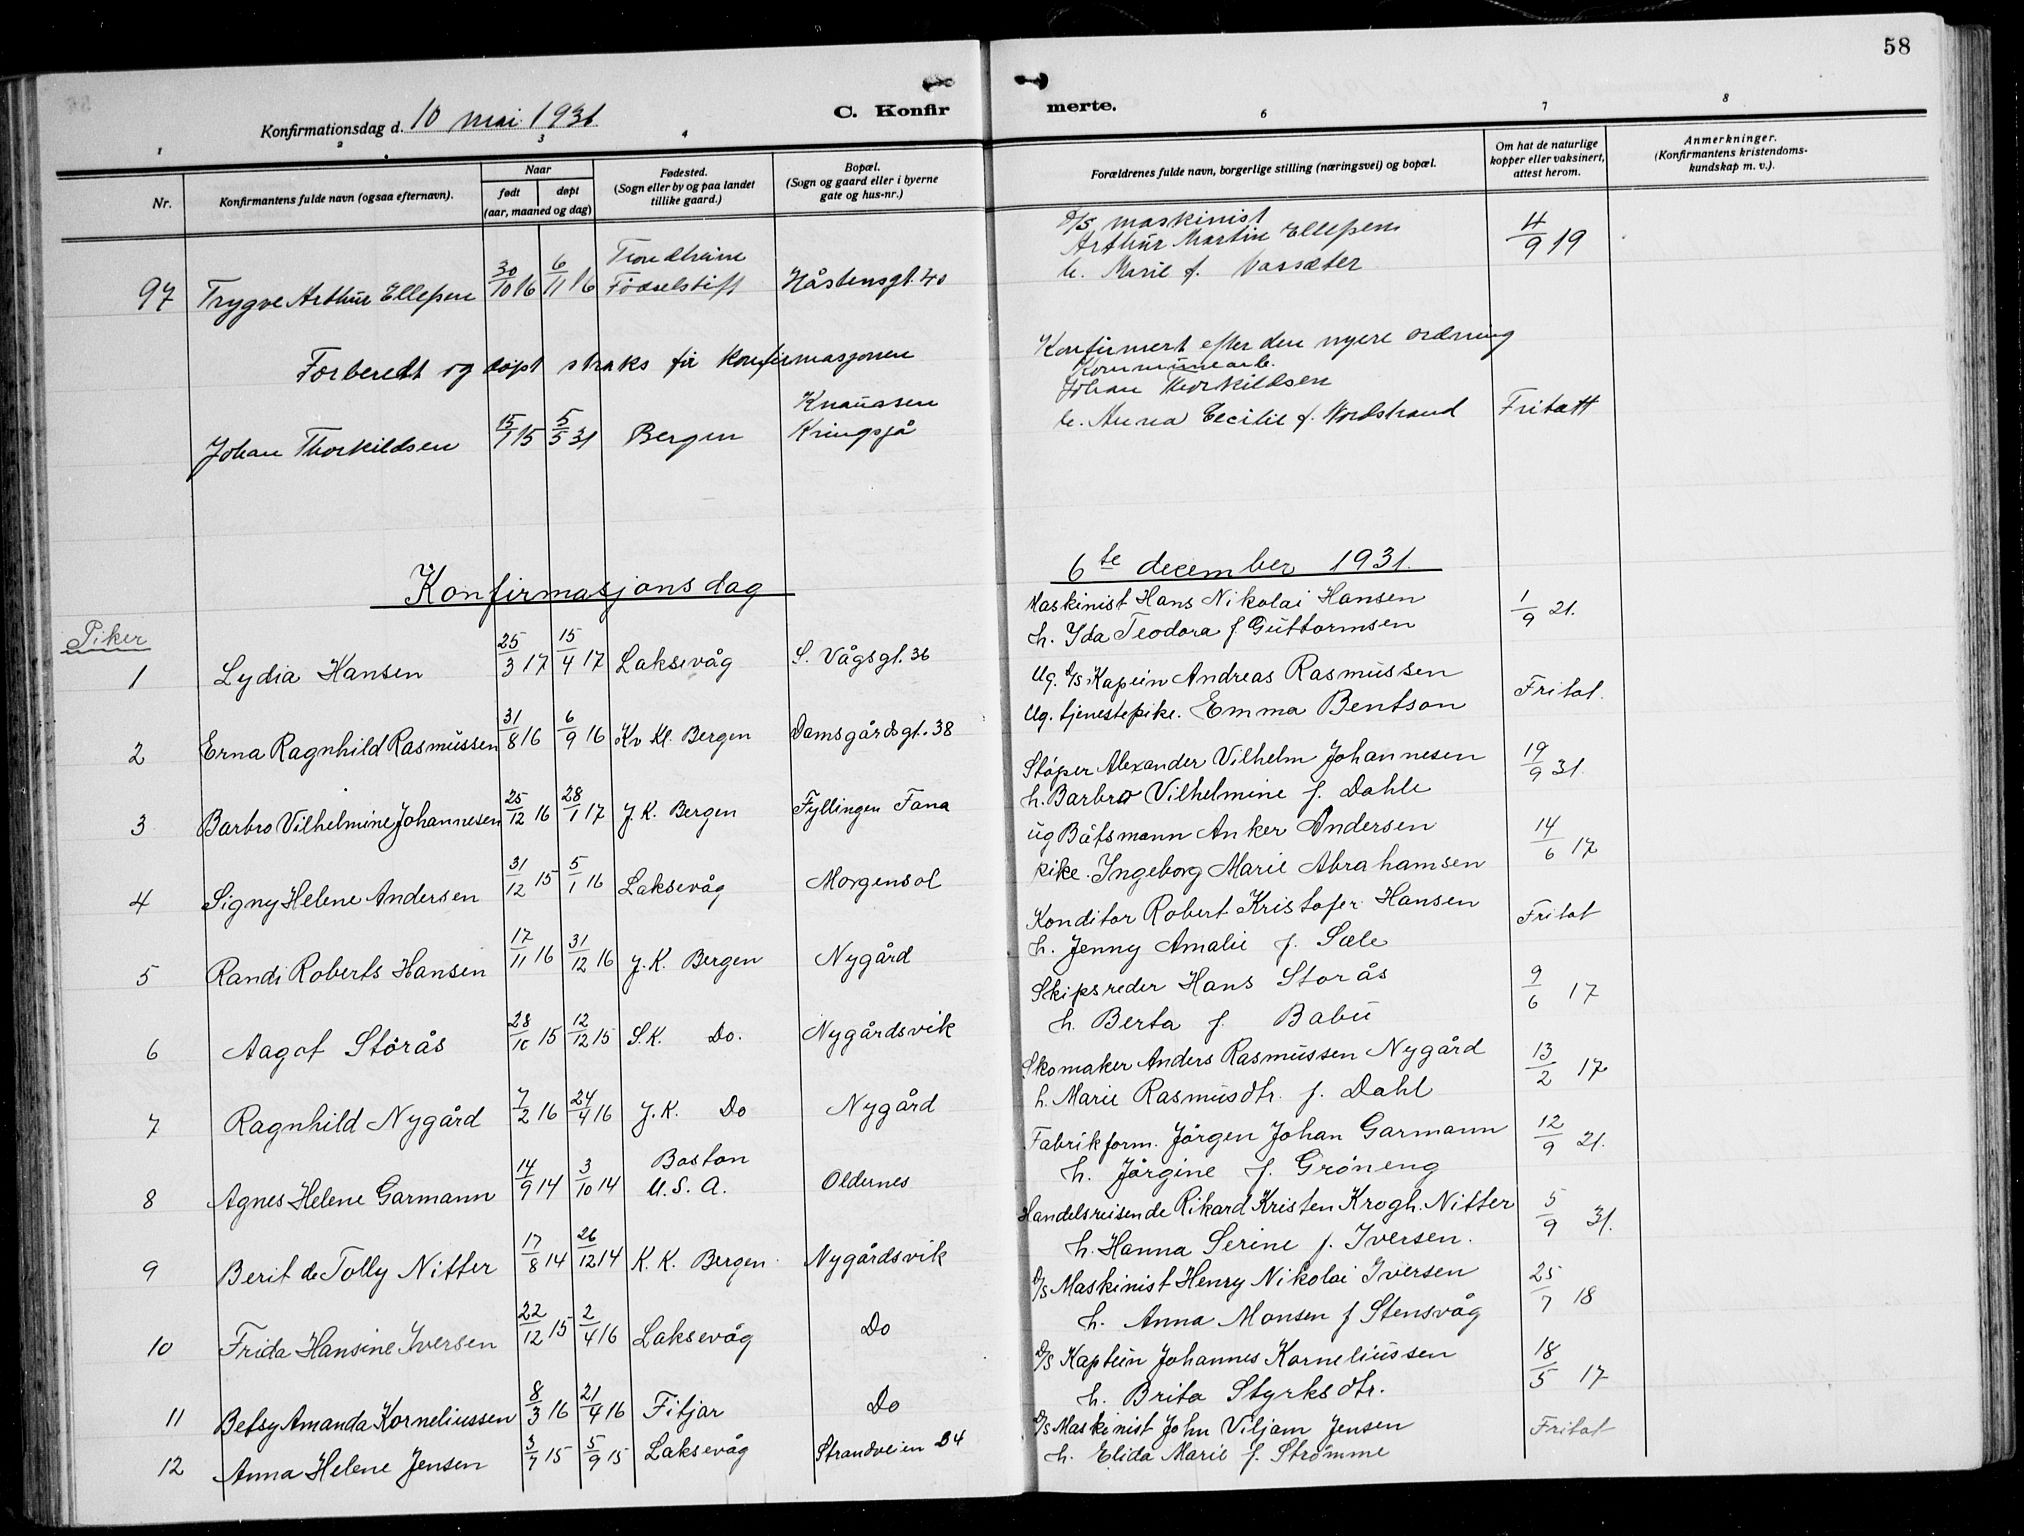 58
Konfirmationsdag d. 10 mai 1931
C. Konfirmerte.
1 2 3 4 6 7 8
Nr.
Konfirmantens fulde navn (ogsaa efternavn).
Naar
født
døpt
(aar, maaned og dag)
Fødested.
(Sogn eller by og paa landet
tillike gaard.)
Bopæl.
(Sogn og gaard eller i byerne
gate og hus-nr.)
Forældrenes fulde navn, borgerlige stilling (næringsvei) og bopæl.
Om hat de naturlige
kopper eller vaksinert,
attest herom.
Anmerkninger.
(Konfirmantens kristendoms-
kundskap m. v.).
D/S maskinist
Arthur Martin Ellefsen
97 Trygve Arthur Ellefsen 30/10 16 6/11 16 Trondheim
Fødselstift Håstensgt. 40 h. Marie f. Vassæter 4/9 19
Forberedt og døpt straks før konfirmasjonen Konfirmert efter den nyere ordning
Kommunearb.
Johan Thorkildsen
Johan Thorkildsen 15/1 15 5/5 31 Bergen Knaussen
Kringsjå h. Anna Cecilie f. Nordstrand Fritatt
Konfirmasjonsdag 6te december 1931.
Piker
Maskinist Hans Nikolai Hansen
1 Lydia Hansen 25/3 17 15/4 17 Laksevåg S. Vågsgt. 36 h. Yda Teodora f Guttormsen 1/9 21.
Ug. D/S. Kaptein Andreas Rasmussen
2 Erna Ragnhild Rasmussen 31/8 16 6/9 16 Kv Kl. Bergen Damsgårdsgt. 38 Ug. tjenestepike. Emma Bentson Fritat.
Støper Alexander Vilhelm Johannesen
3 Barbro Vilhelmine Johannesen 25/12 16 28/1 17 J. K. Bergen Fyllingen Fana h. Barbro Vilhelmine f. Dahle 19/9 31.
ug Båtsmann Anker Andersen
4 Signy Helene Andersen 31/12 15 5/1 16 Laksevåg Morgensol pike. Ingeborg Marie Abrahamsen 14/6 17
Konditor Robert Kristofer Hansen
5 Randi Roberts Hansen 17/11 16 31/12 16 J. K. Bergen Nygård h. Jenny Amalie f. Sæle Fritat
Skipsreder Hans Storås
6 Aagot Storås 28/10 15 12/12 15 S. K. Do. Nygårdsvik h. Berta f. Babu 9/6 17
Skomaker Anders Rasmussen Nygård
7 Ragnhild Nygård 7/2 16 24/4 16 J. K. Do Nygård h. Marie Rasmusdtr. f. Dahl 13/2 17
Fabrikform. Jørgen Johan Garmann
8 Agnes Helene Garmann 14/9 14 3/10 14 Boston
U. S. A. Oldernes h. Jørgine f. Grøneng 12/9 21.
Handelsreisende Rikard Kristen Krogh. Nitter
9 Berit de Tolly Nitter 17/8 14 26/12 14 K. K. Bergen Nygårdsvik h. Hanna Serine f. Iversen. 5/9 31.
D/S Maskinist Henry Nikolai Iversen
10 Frida Hansine Iversen 22/12 15 2/4 16 Laksevåg Do h. Anna Monsen f Stensvåg 25/7 18
D/S Kaptein Johannes Korneliussen
11 Betsy Amanda Korneliussen 8/3 16 21/4 16 Fitjar Do h. Brita Styrksdtr. 18/5 17
D/S Maskinist John Viljam Jensen
12 Anna Helene Jensen 3/7 15 5/9 15 Laksevåg Strandveien 34 h. Elida Marie f. Strømme Fritat